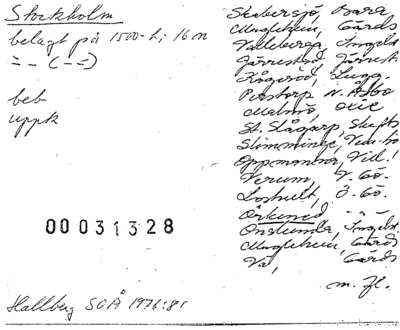 Stockholm
belagt på 1500-t; 16 n
=-- (--=)
beb
uppk
00031328
Hallberg SOÅ 1976:81
Skabersjö, Bara
Maglehem, Gärds
Valleberga, Ingelst
Järrestad, Järrest
Kågeröd, Lugg.
Perstorp N. Åsbo
Malmö, Oxie
St. Slågarp, Skytts
Slimminge, Vem
Oppmanna, Vill.
Verum, V. Gö.
Loshult, Ö. Gö.
Örkened, -- --
Onslunda, Ingelst.
Maglehem, Gärds
Vä, Gärds
m. fl.